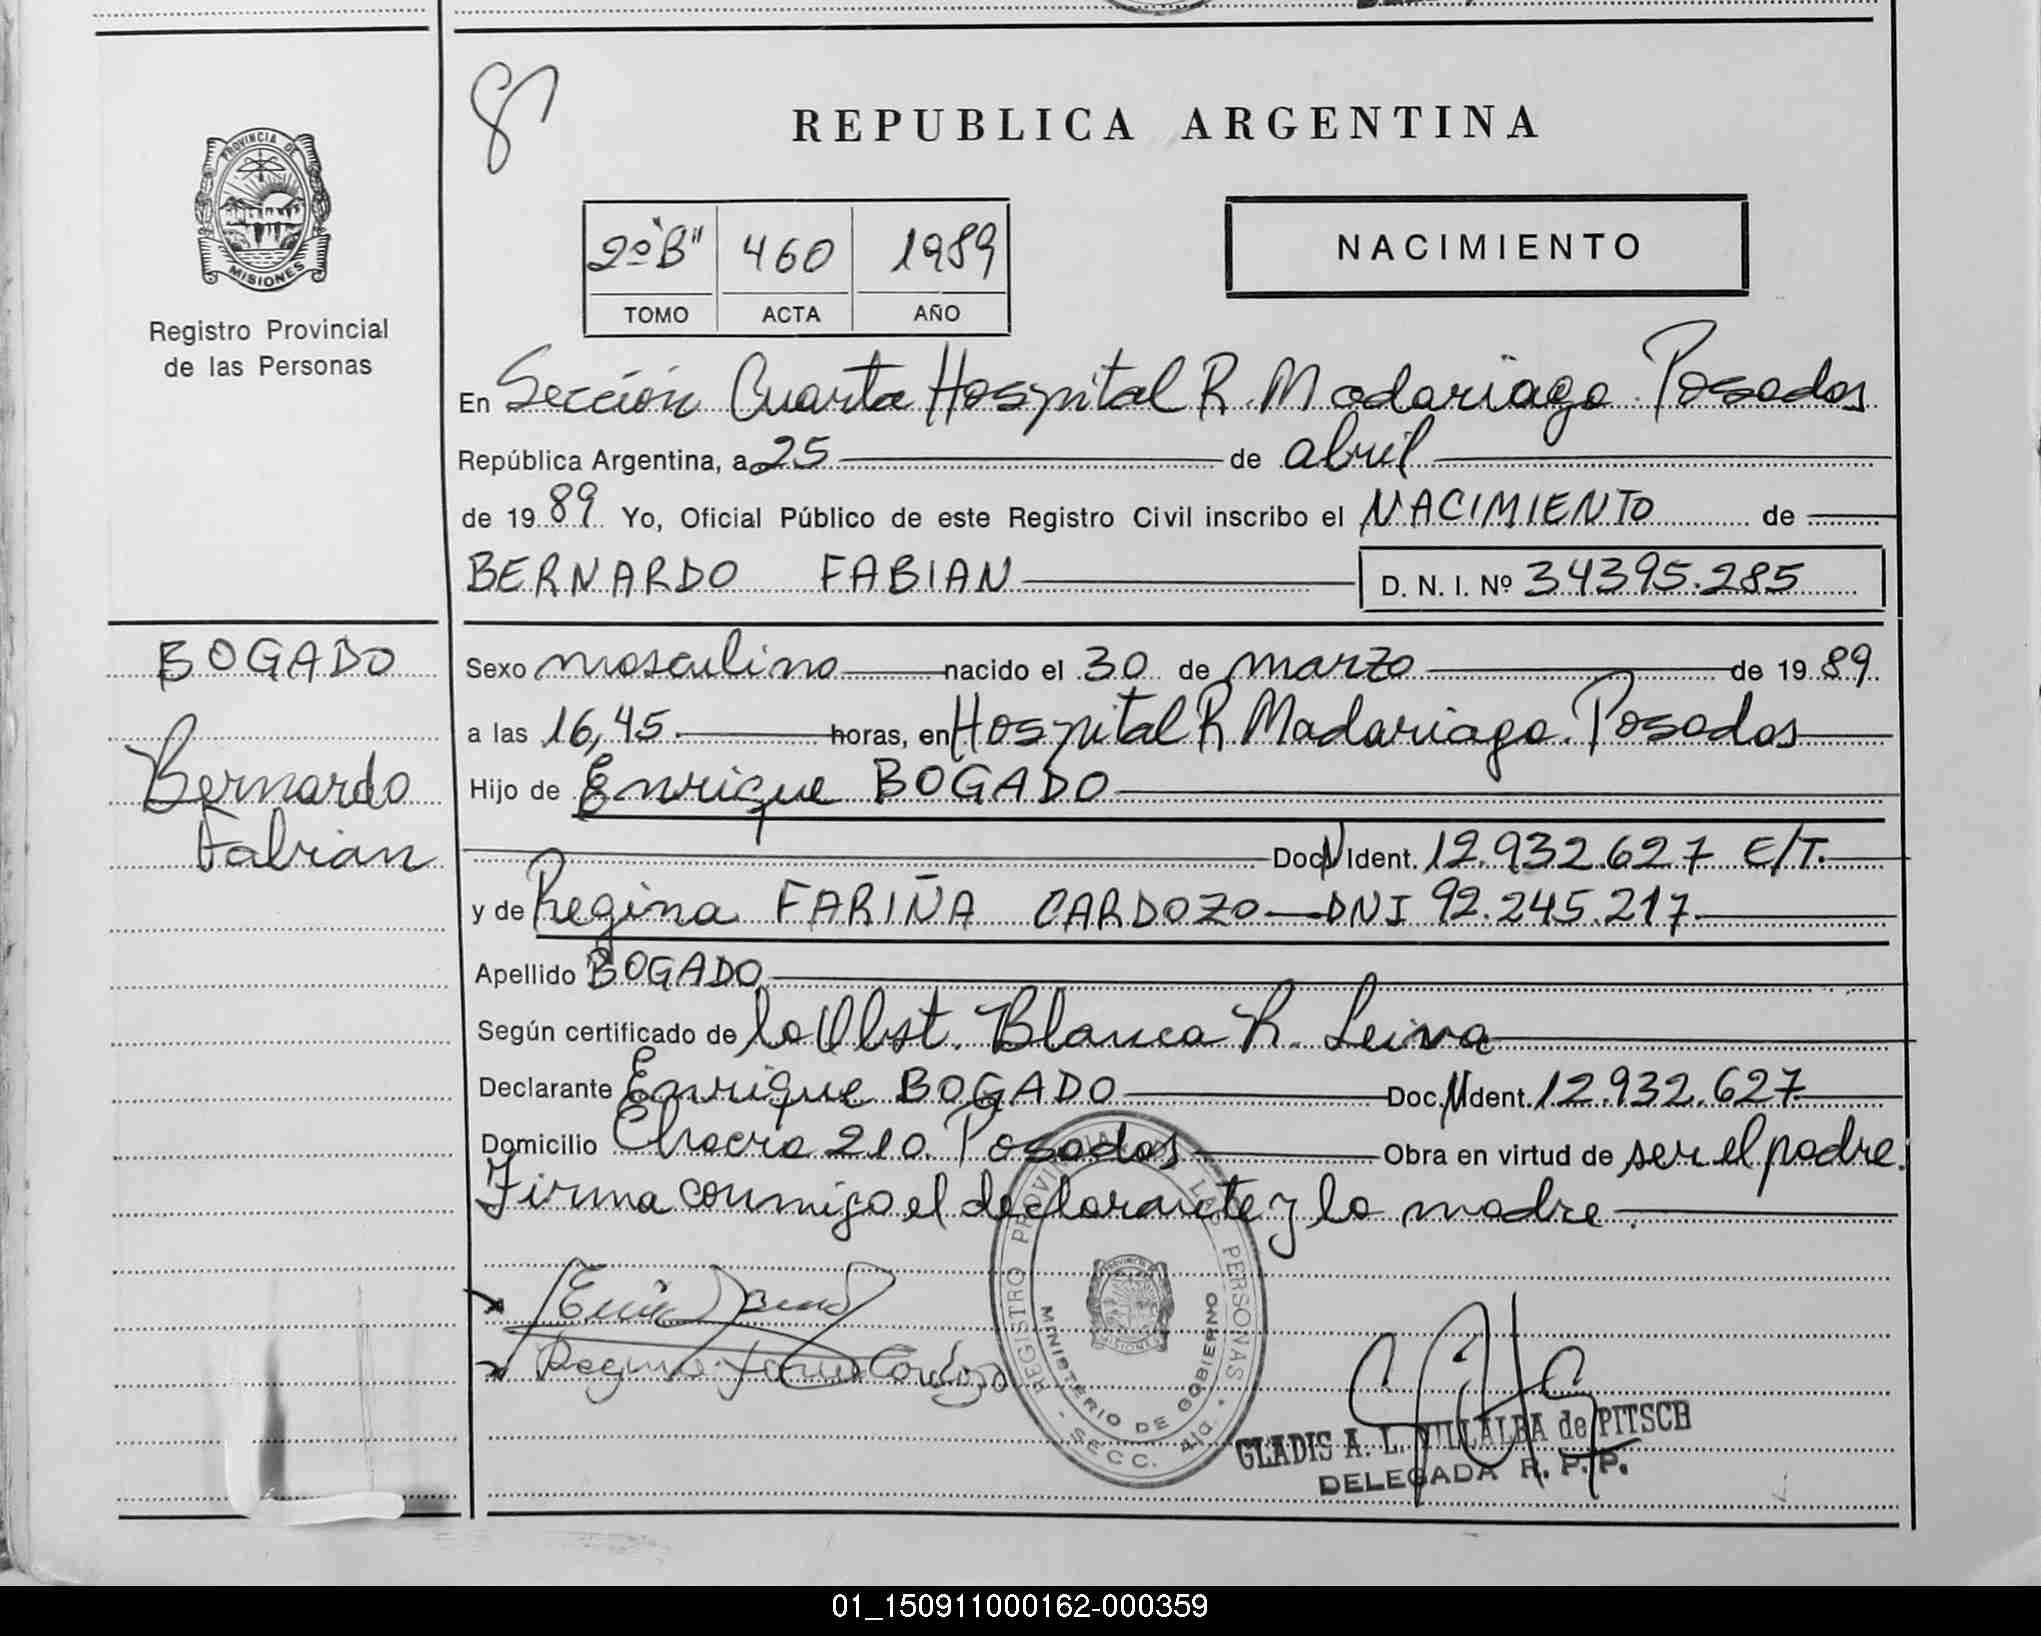 87
REPUBLICA ARGENTINA
PROVINCIA DE
MISIONES
Registro Provincial
de las Personas
2º "B" 460 1989
TOMO ACTA AÑO
NACIMIENTO
En Sección Cuarta Hospital R. Madariaga. Posadas
República Argentina, a 25 de abril
de 1989 Yo, Oficial Público de este Registro Civil inscribo el NACIMIENTO de
BERNARDO FABIAN D. N. I. Nº 34395.285
BOGADO
Bernardo
Fabian
Sexo masculino nacido el 30 de marzo de 1989
a las 16,45. horas, en Hospital R Madariaga. Posadas
Hijo de Enrique BOGADO
Doc N Ident. 12.932.627 E/T.
y de Regina FARIÑA CARDOZO DNI 92.245.217
Apellido BOGADO
Según certificado de la Obst. Blanca R. Leiva
Declarante Enrique BOGADO Doc. N Ident. 12.932.627
Domicilio Chacra 210. Posadas Obra en virtud de ser el padre.
Firma conmigo el declarante y la madre.
Regina Cardozo
REGISTRO PROVINCIAL DE LAS PERSONAS
MINISTERIO DE GOBIERNO
PROVINCIA DE
MISIONES
SECC. 4ta.
GLADIS A. L. VILLALBA de PITSCH
DELEGADA R. P. P.
01_150911000162-000359